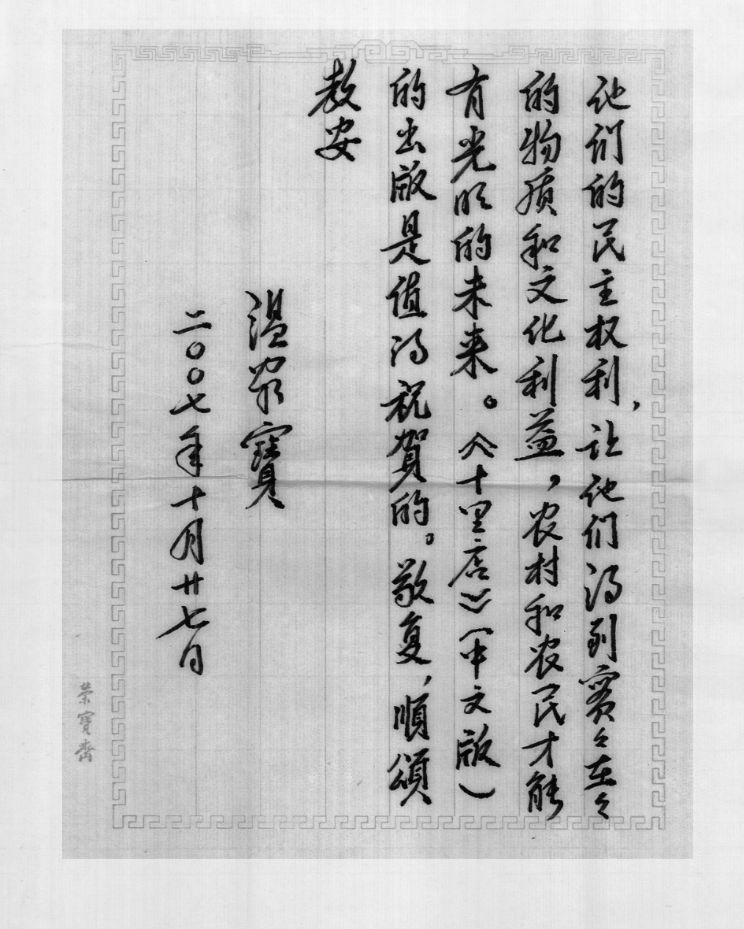 他们的民主权利，让他们得到实々在々
的物质和文化利益，农村和农民才能
有光明的未来。《十里店》（中文版）
的出版是值得祝賀的。敬复，順頌
教安
温家寶
二〇〇七年十月廿七日
荣寳斋